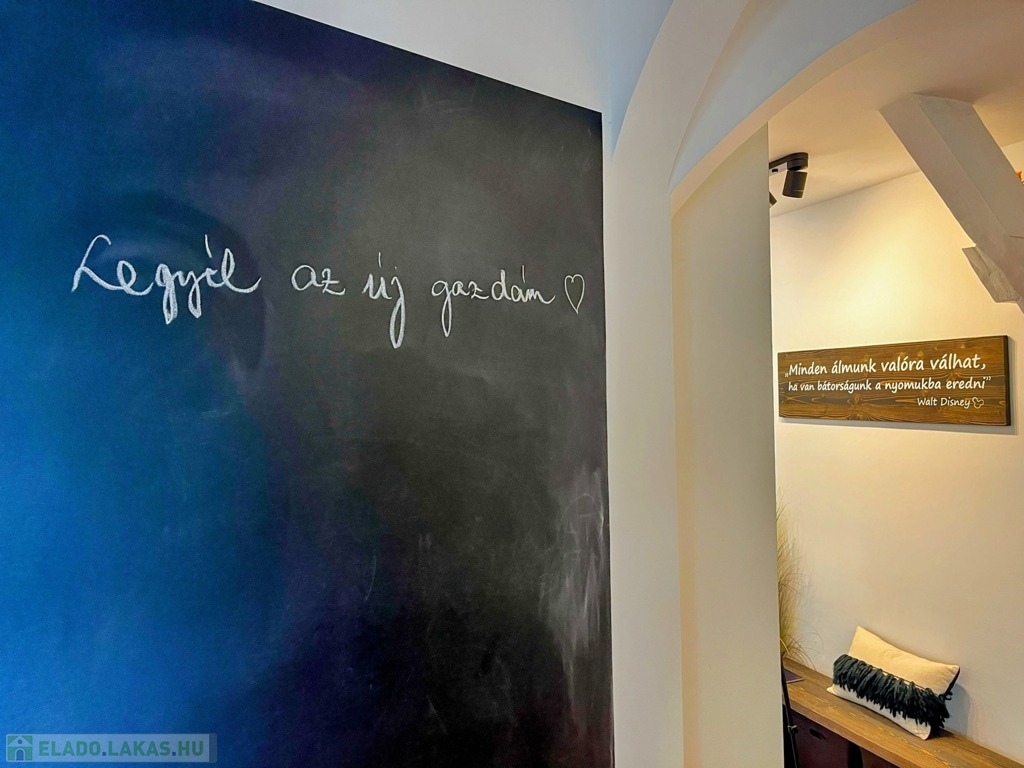 Legyél az új gazdám ♡
„Minden álmunk valóra válhat,
ha van bátorságunk a nyomukba eredni”
Walt Disney
ELADO.LAKAS.HU